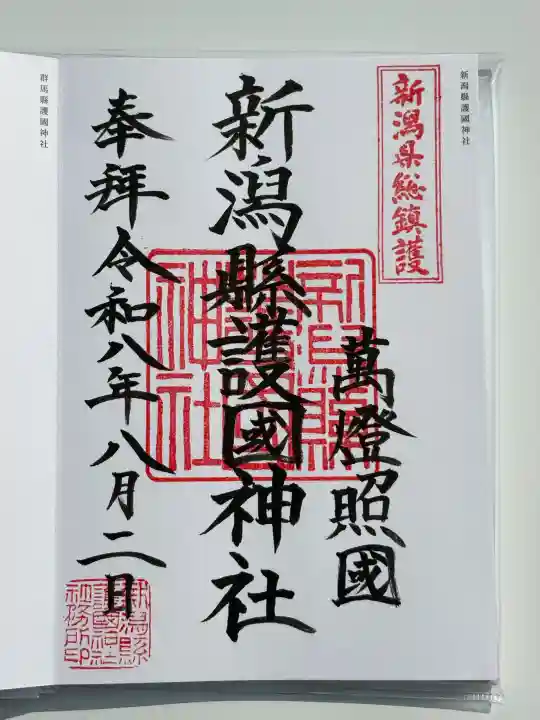 新潟縣護國神社
新潟県総鎮護
萬燈照國
新潟縣護國神社
奉拝 令和八年八月二日
新潟縣護國神社
新潟縣護國神社社務所印
群馬縣護國神社